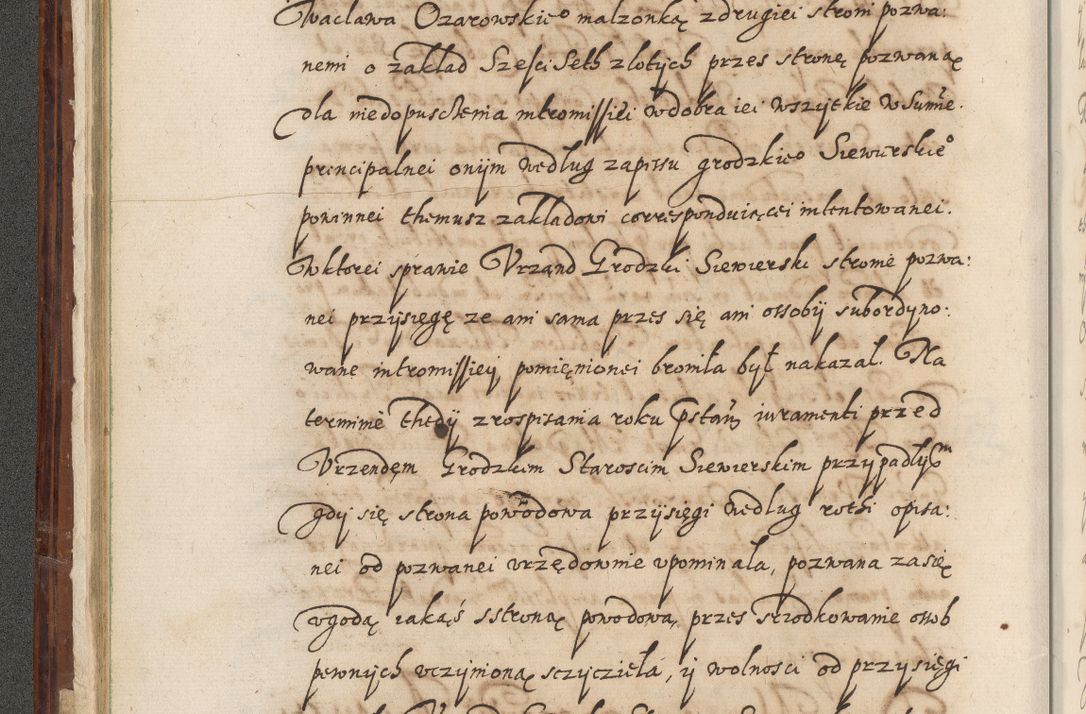 Wacława Ozarowskieo małzonką z drugiei stroni pozwa:
nemi o zakład Szesci Seth złotych przes stronę pozwaną
dla niedopusczenia intromissiei w dobra iei wszytkie w Sumie
principalnei onym według zapissu grodzkieo Siewierskieo
powinnei themusz zakładowi correspondującei intentowanei.
W ktorei sprawie Vrząnd Grodzki Siewierski stronie pozwa:
nei przysięgę ze ani sama przes się ani ossoby subordyno:
wane intromissiey pomięnionei broniła był nakazał. Na
terminie thedy z rospisania roku pstam iuramenti przed
Vrzendęm Grodzkim Staroscim Siewierskim przypadłym
gdy się strona powodowa przysięgi według rothi opisa:
nei od pozwanei vrzędownie vpominała, pozwana zasię
vgodą iakąś s stroną powodową, przes srzodkowanie ossob
pewnych vczynioną sczyciełá, y wolnosci od przysięgi